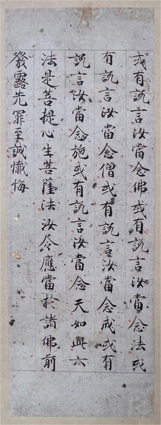 或有說言汝當念佛或有說言汝當念法或
有說言汝當念僧或有說言汝當念戒或有
說言汝當念施或有說言汝當念天如此六
法是菩提心生菩薩法汝今應當於諸佛前
發露先罪至誠懺悔